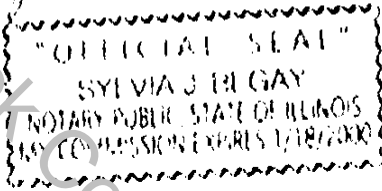 "OFFICIAL SEAL"
SYLVIA J.
NOTARY PUBLIC, STATE OF ILLINOIS
MY COMMISSION EXPIRES 1/18/2000